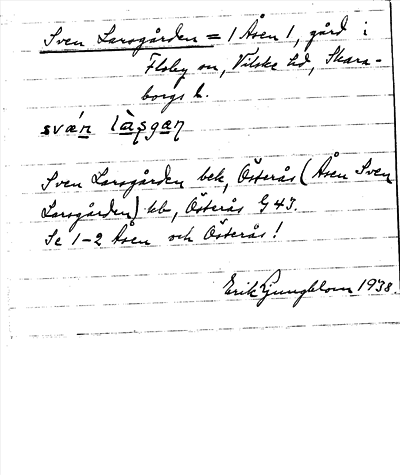 Sven Larsgården = 1 Åsen 1, gård i
Floby sn, Vilske hd, Skara-
borgs l.
svǽn làsgaɳ
Sven Larsgården bek, Österås (Åsen Sven
Larsgården) kb, Österås G 43.
Se 1-2 Åsen och Österås!
Erik Ljungblom 1938.